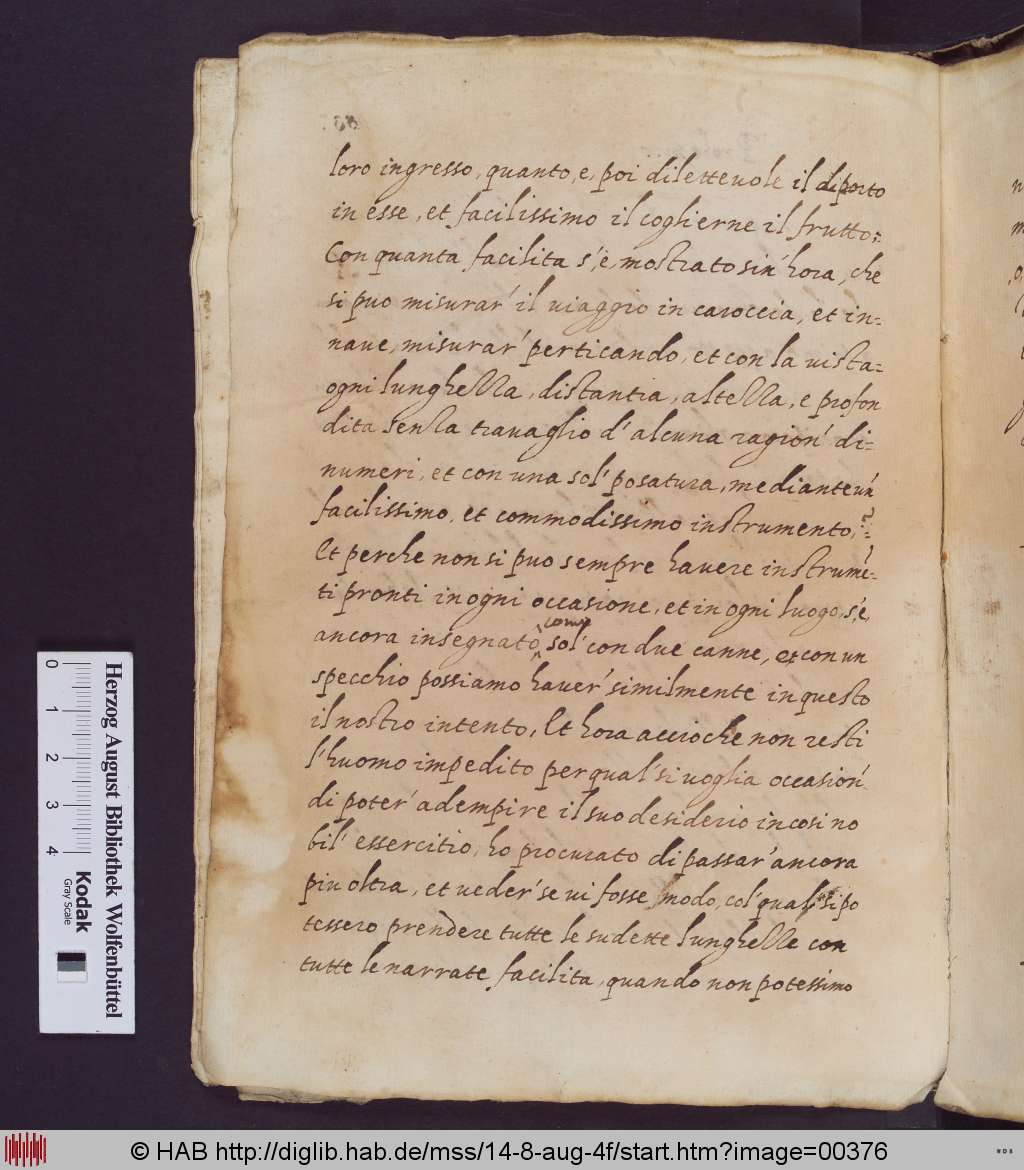 loro ingresso, quanto, e, poi diletteuole il diporto
in esse, et facilissimo il coglierne il frutto:
Con quanta facilita s'è, mostrato sin' hora, che
si puo misurar' il uiaggio in caroccia, et in=
naue, misurar' perticando, et con la uista=
ogni lunghezza, distantia, altezza, e profon
dita senza trauaglio d' alcuna ragion' di=
numeri, et con una sol' posatura, mediante un'
facilissimo, et commodissimo instrumento,
Et perche non si puo sempre hauere instrumē=
ti pronti in ogni occasione, et in ogni luogo, s'è,
come
ancora insegnato, sol' con due canne, et con un
specchio possiamo hauer' similmente in questo
il nostro intento, Et hora accioche non resti
l' huomo impedito per qual' si uoglia occasion'
di poter' adempire il suo desiderio in cosi no
bil' essercitio, ho procurato di passar' ancora
piu oltra, et ueder' se ui fosse modo, col' qual' si po
tessero prendere tutte le sudette lunghezze con
tutte le narrate facilita, quando non potessimo
0 1 2 3 4
Herzog August Bibliothek Wolfenbüttel
Kodak
Gray Scale
© HAB http://diglib.hab.de/mss/14-8-aug-4f/start.htm?image=00376